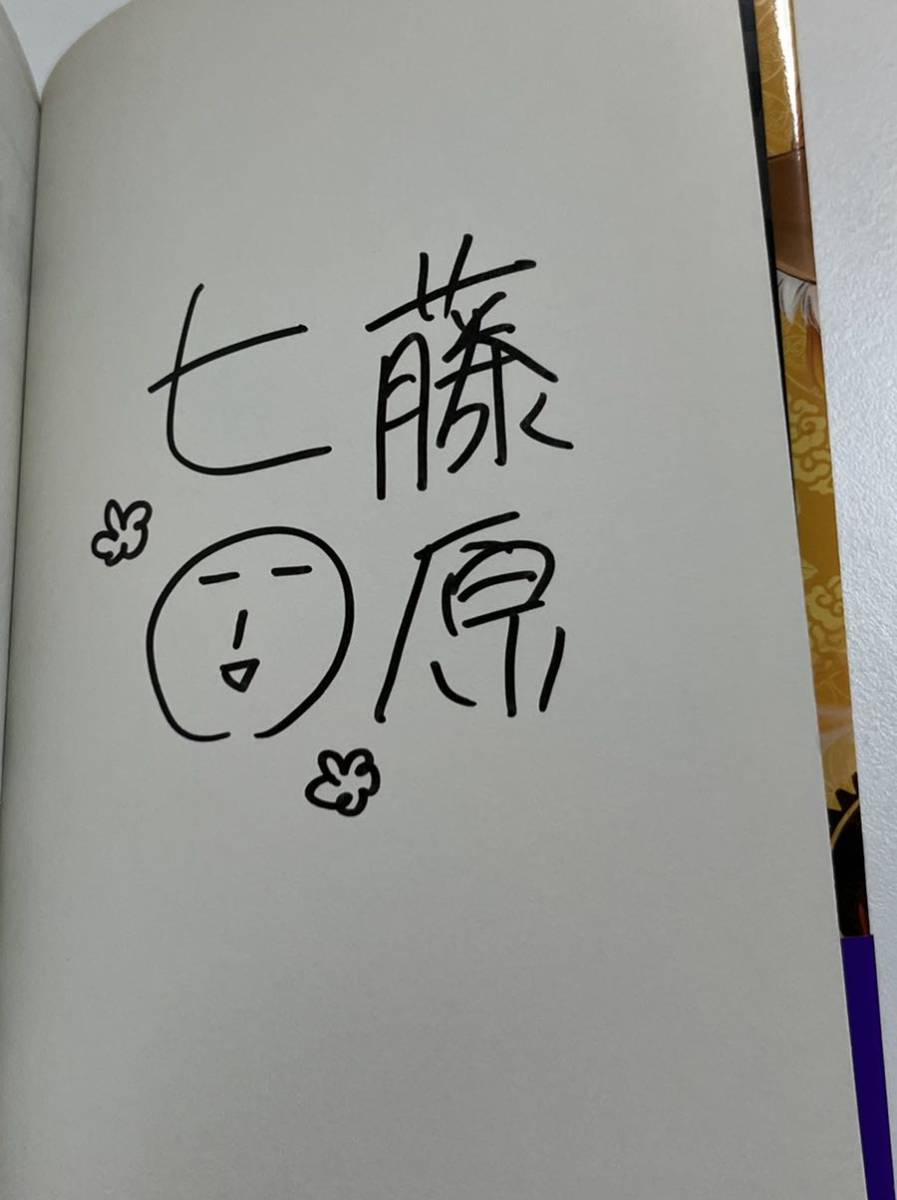 藤原
七